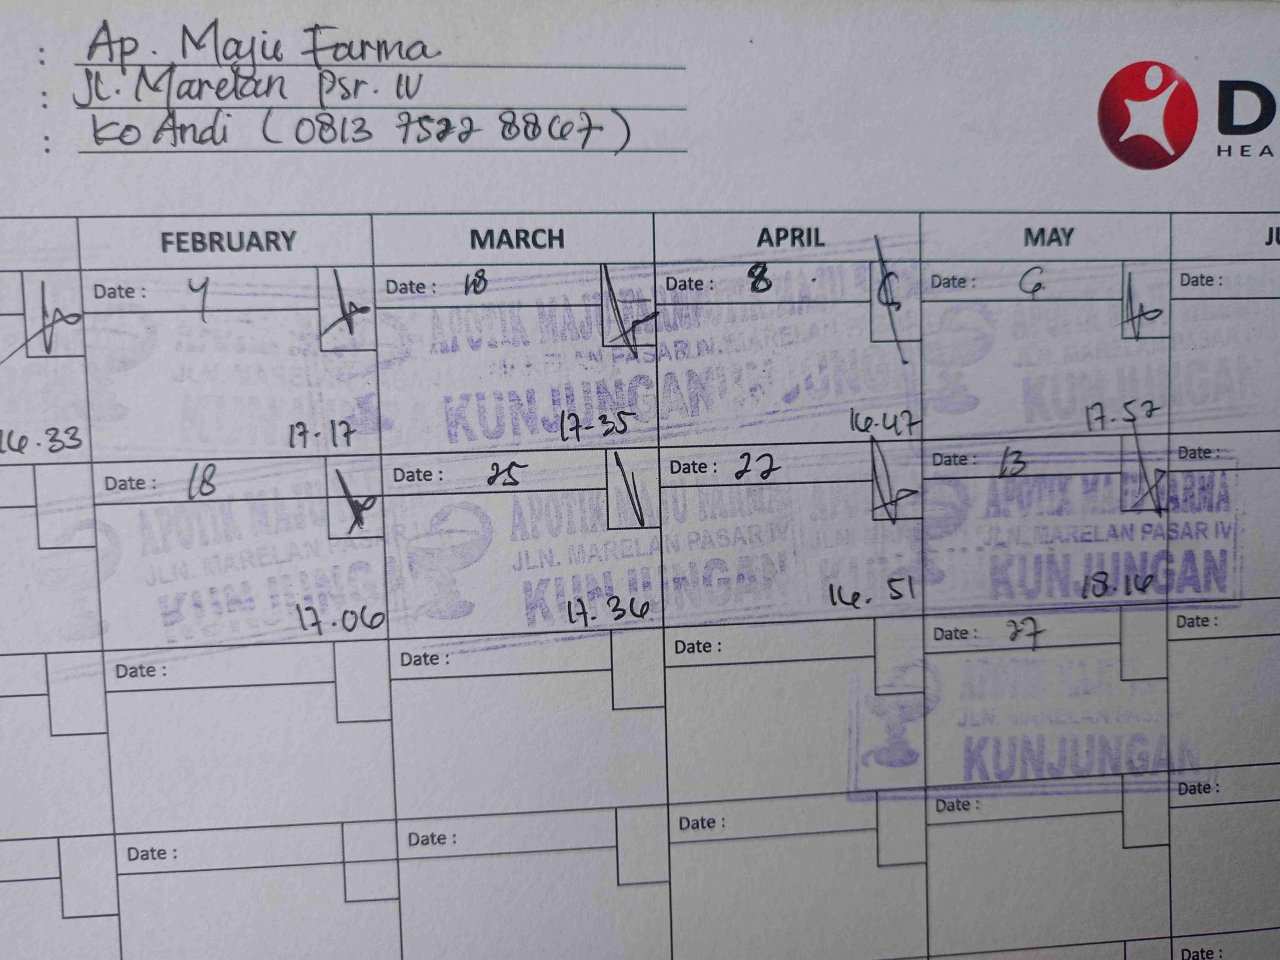 : Ap. Maju Farma
: Jl. Marelan Psr. IV
: Ko Andi (0813 7522 8867)
D
HEA
FEBRUARY MARCH APRIL MAY JU
Date : 4 Date : 18 Date : 8 Date : 6 Date :
APOTIK MAJU
PASAR IV.
KUNJUNGAN
16.33 17.17 17.35 16.47 17.57
Date : 18 Date : 25 Date : 22 Date : 13 Date :
APOTIK MAJU APOTIK MAJU FARMA APOTIK MAJU FARMA
JLN. MARELAN PASAR JLN. MARELAN PASAR IV JLN. MARELAN PASAR IV
KUNJUNGAN KUNJUNGAN KUNJUNGAN
17.06 17.36 16.51 18.16
Date : Date : Date : Date : 27 Date :
APOTIK MAJU
JLN. MARELAN PASAR
KUNJUNGAN
Date : Date : Date : Date : Date :
Date :